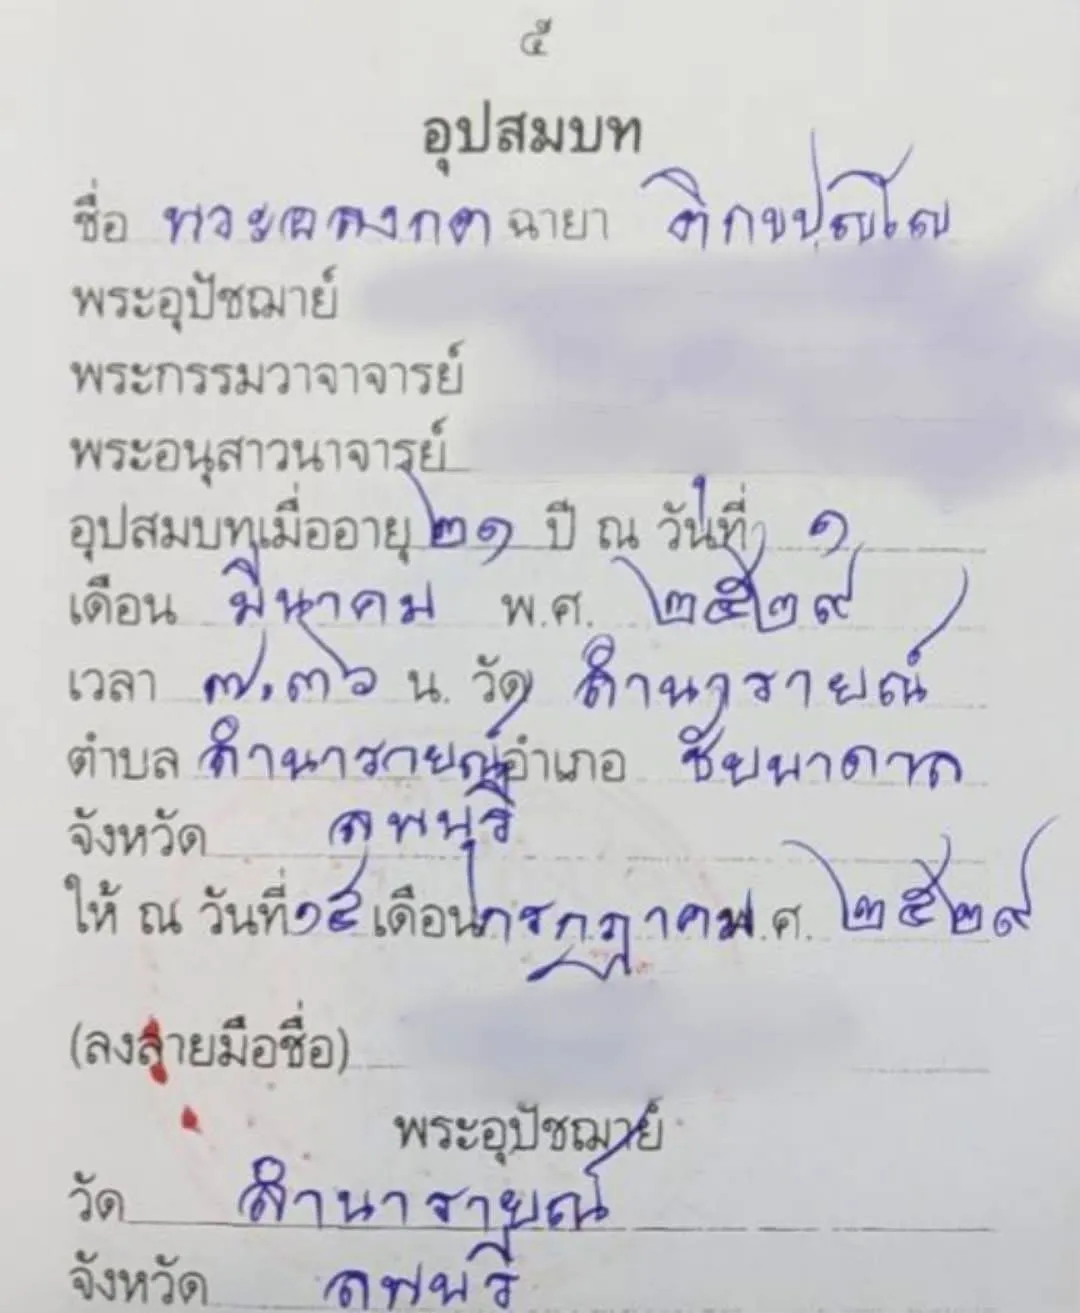 ๕
อุปสมบท
ชื่อ พระอลงกต ฉายา ติกขปญฺโญ
พระอุปัชฌาย์
พระกรรมวาจาจารย์
พระอนุสาวนาจารย์
อุปสมบทเมื่ออายุ ๒๑ ปี ณ วันที่ ๑
เดือน มีนาคม พ.ศ. ๒๕๒๙
เวลา ๗.๓๖ น. วัด ลำนารายณ์
ตำบล ลำนารายณ์ อำเภอ ชัยบาดาล
จังหวัด ลพบุรี
ให้ ณ วันที่ ๑๕ เดือน กรกฎาคม พ.ศ. ๒๕๒๙
(ลงลายมือชื่อ)
พระอุปัชฌาย์
วัด ลำนารายณ์
จังหวัด ลพบุรี